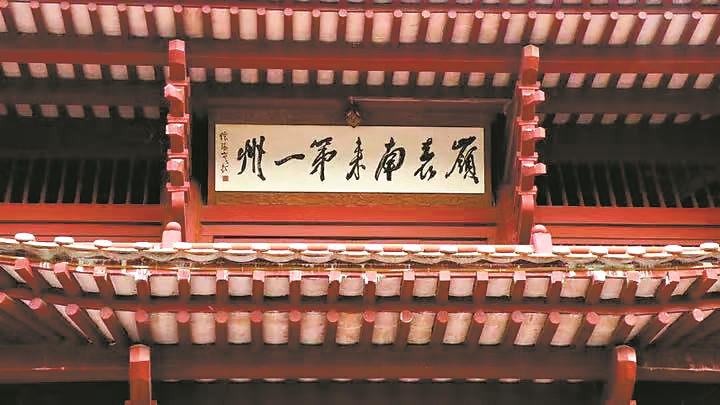 嶺表南來第一州